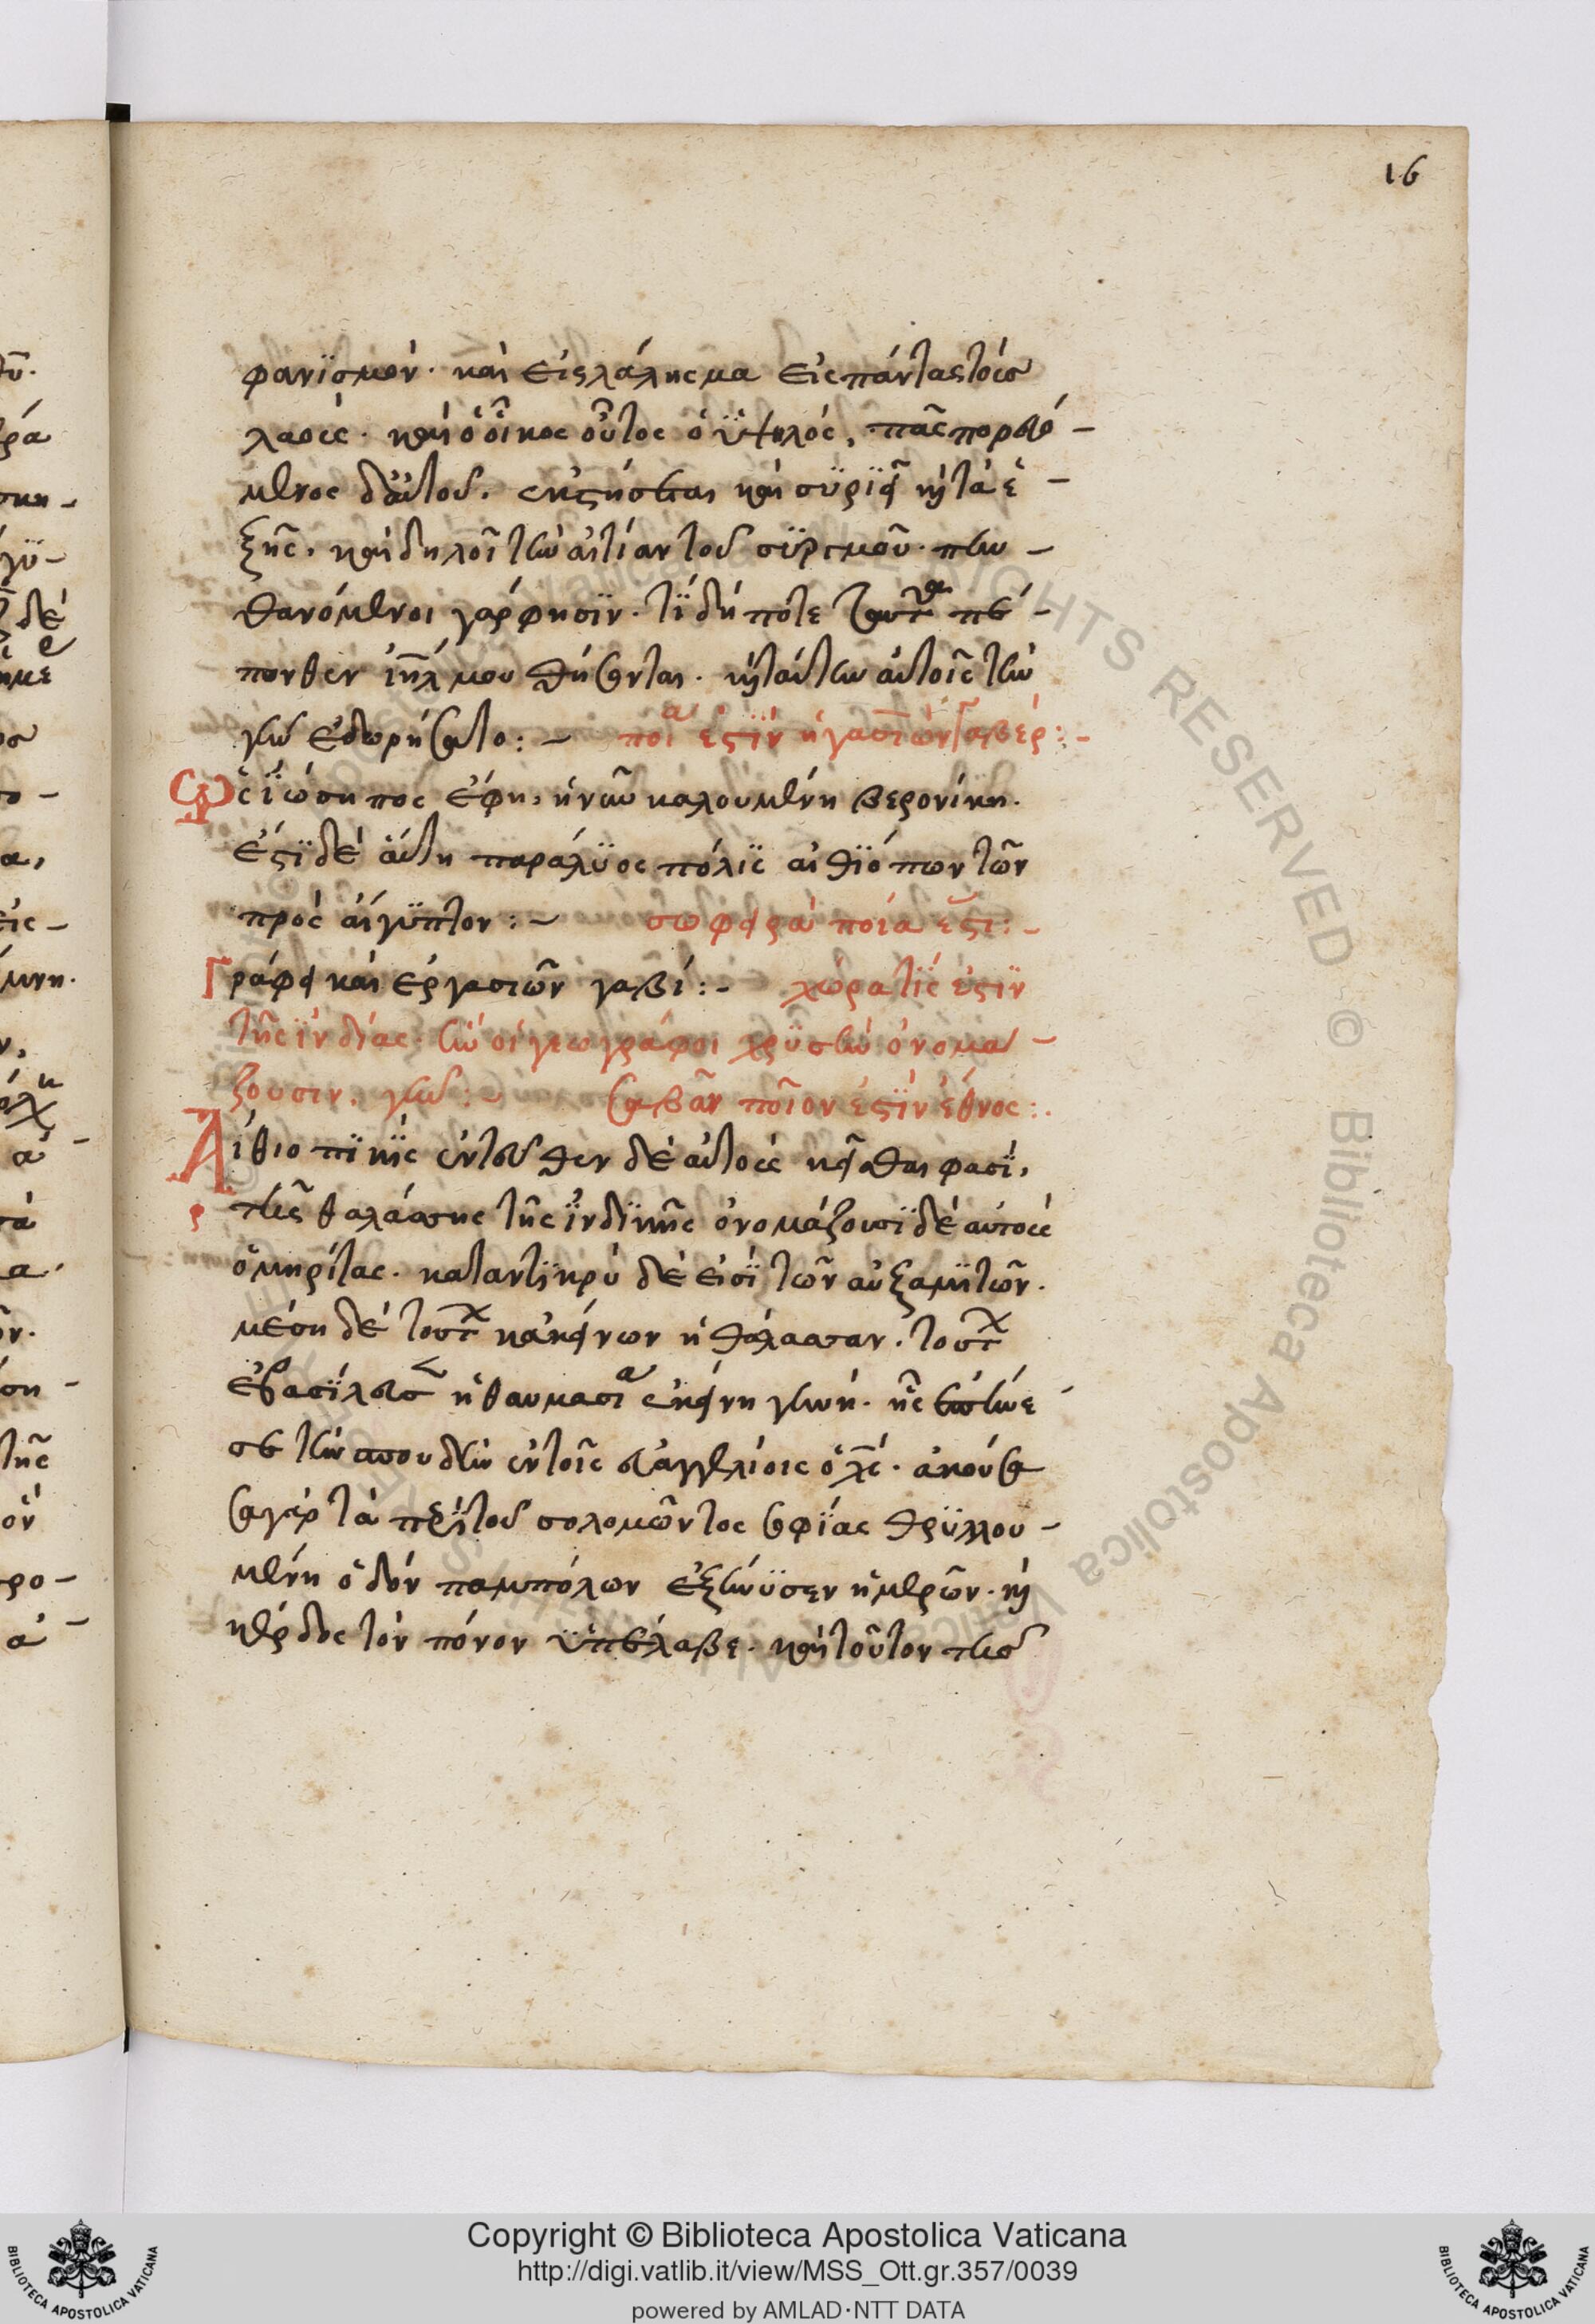 16
φανϊσμὸν· καὶ εἰς λάλησμα εἰς πάντας τοὺσ
λαοὺς· καὶ ὁ οἶκος οὗτος ὁ ὑψηλός, πᾶς πορευό-
μενος δἰαὐτοῦ. ἐκστήσεται καὶ συριεῖ καὶ τὰ ἑ-
ξῆς. καὶ δηλοῖ τὴν αἰτίαν τοῦ συρισμοῦ· πυν-
θανόμενοι γάρ φησϊν· τΐ δή ποτε ταῦτα πέ-
πονθεν ἰηλ μου θήσονται. καὶ ταύτην αὐτοῖς τὴν
γῆν ἐδωρήσατο:- ποία ἐστὶν ἡ γασιὼν γαβέρ:-
Ὡς ϊώσηπος ἔφη, ἡ νῦν καλουμένη βερονίκη.
ἔστϊ δὲ αὕτη παράλϋος πόλϊς αἰθϊόπων τῶν
πρὸς αἴγϋπτον:- σωφειρὰ ποία ἐστι:-
Γράφει καὶ ἐργασιῶν γαβέ:- χώρα τϊς ἐστϊν
τῆς ϊνδίας· ἣν οἱ γεωγράφοι χρϋσὴν ὀνομά-
ζουσιν. γῆν:- σαβᾶν ποῖον ἐστϊν ἔθνος:.
Αἰθιοπϊκὴς ἐντεῦθεν δὲ αὐτοὺς κεῖσθαι φασὶ,
τῆς θαλάσσης τῆς ϊνδϊκῆς ὀνομάζουσϊ δὲ αὐτοὺς
ὁμηρίτας· καταντϊκρὺ δὲ εἰσϊ τῶν αὐξαμϊτῶν.
μέση δὲ τούτων κἀκείνων ἡ θάλασσαν. τούτων
ἐβασίλευσεν ἡ θαυμασία ἐκείνη γυνή. ἧς
σε τὴν σπουδὴν ἐν τοῖς εὐαγγελίοις ὁ χς· ἀκούσα
σα γὰρ τὰ περὶ τοῦ σολομῶντος σοφΐας θρϋλλου-
μένη ὁδὸν παμπόλων ἐξήνϋσεν ἡμερῶν· καὶ
κέρδος τὸν πόνον ὑπέλαβε· καὶ τοῦτον τῆσ
Copyright © Biblioteca Apostolica Vaticana
http://digi.vatlib.it/view/MSS_Ott.gr.357/0039
powered by AMLAD·NTT DATA
BIBLIOTECA APOSTOLICA VATICANA
BIBLIOTECA APOSTOLICA VATICANA